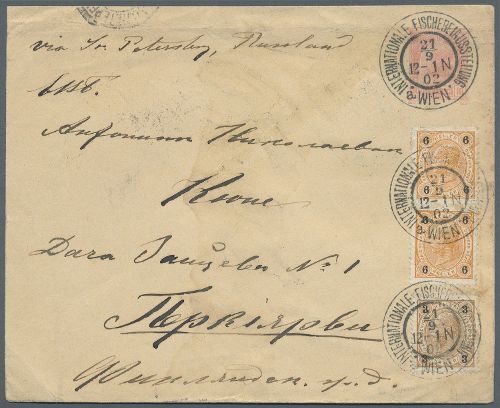 via St Petersburg, Russland
Антонину Николаевичу
Кюне
Дача Зайцева № 1
Перкіярви
Финлянден. ж. д.
INTERNATIONALE FISCHEREI-AUSSTELLUNG
21
9
12-1N
02
* WIEN *
6 6
6 6
INTERNATIONALE
21
9
12-1N
02
WIEN
6 6
6 6
3 3
INTERNATIONALE FISCHEREI
21
9
12-1N
02
3 3